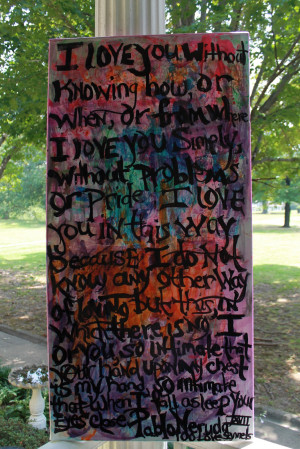 I LOVE you. Without
Knowing how, or
when, or from where
I love you simply,
without problems
or Pride I LOVE
you in this way
Because I do not
know any other way
of loving but this, in
which there is no I
or you, so intimate that
your hand upon my chest
is my hand, so intimate
that when I fall asleep your
eyes close. Pablo Neruda XVII
100 Love Sonnets